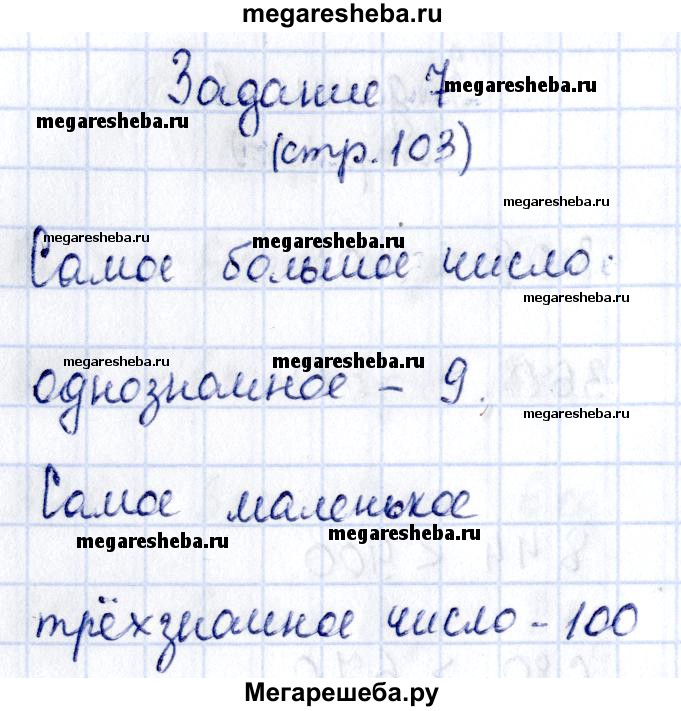 megaresheba.ru
Задание 7
megaresheba.ru
megaresheba.ru
(стр. 103)
megaresheba.ru
megaresheba.ru
megaresheba.ru
Самое большое число
megaresheba.ru
megaresheba.ru
megaresheba.ru
однозначное – 9.
megaresheba.ru
Самое маленькое
megaresheba.ru
megaresheba.ru
трёхзначное число – 100
Мегарешеба.ру